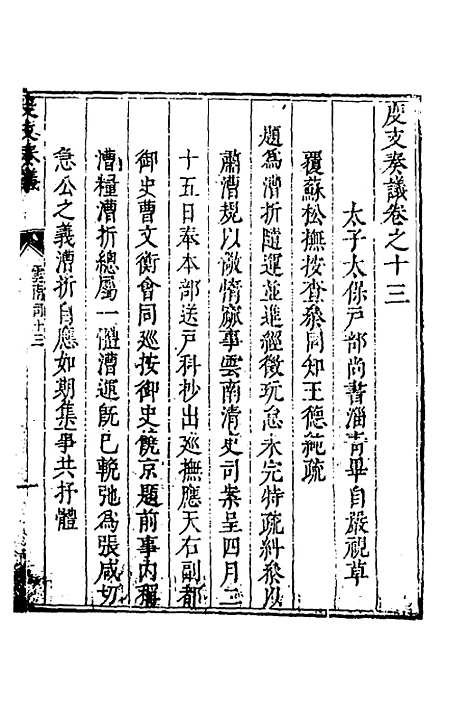 度支奏議卷之十三
太子太保戶部尚書淄青畢自嚴視草
覆蘇松撫按查叅同知王德純疏
題為漕折隨運並進經徵玩怠未完特疏糾叅以
肅漕規以儆惰窳事雲南清吏司案呈四月二
十五日奉本部送戶科抄出廵撫應天右副都
御史曹文衡會同廵按御史饒京題前事內稱
漕糧漕折總屬一體漕運既已輓弛為張咸切
急公之義漕折自應如期集事共抒體
度支奏議
雲南司十三